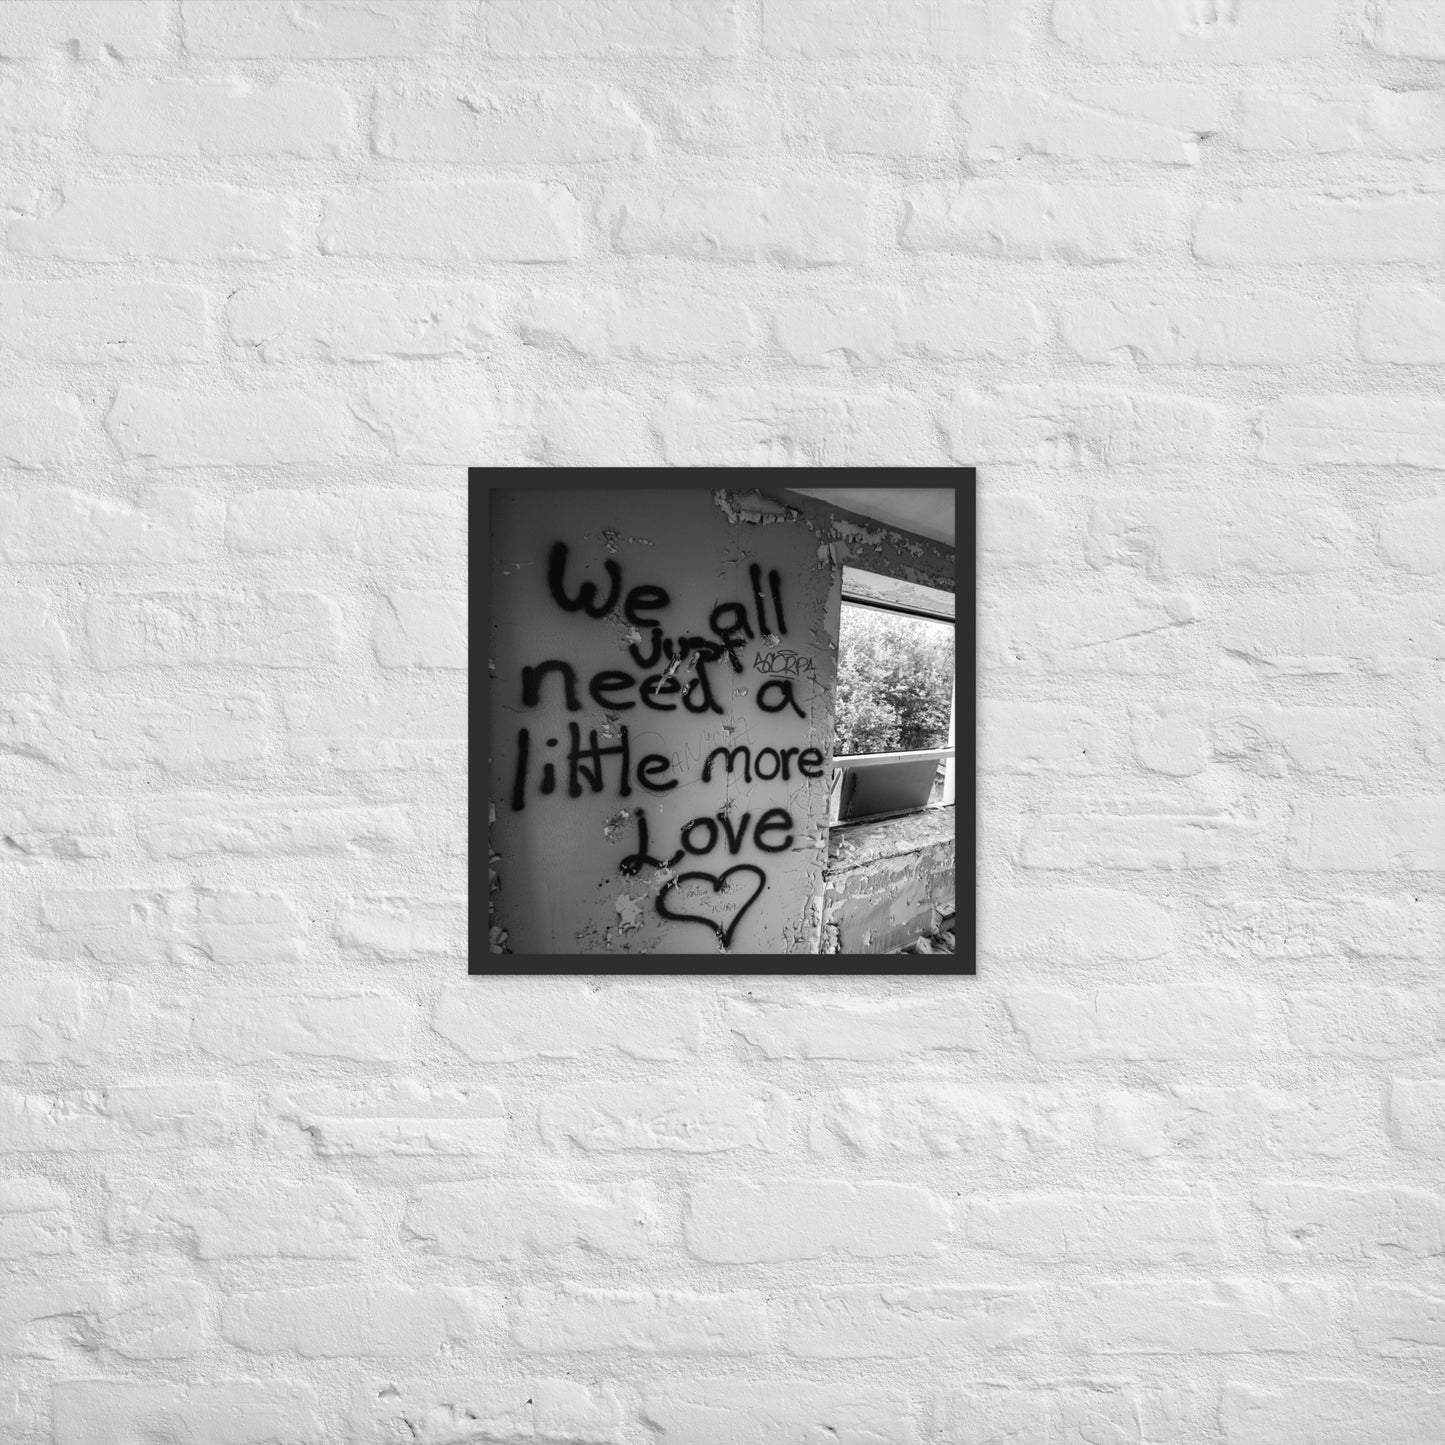 We all
just
need a
little more
Love
&
KUBA